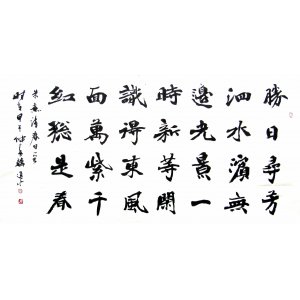 勝日尋芳
泗水濱無
邊光景一
時新等閒
識得東風
面萬紫千
紅總是春
朱熹詩春日一首